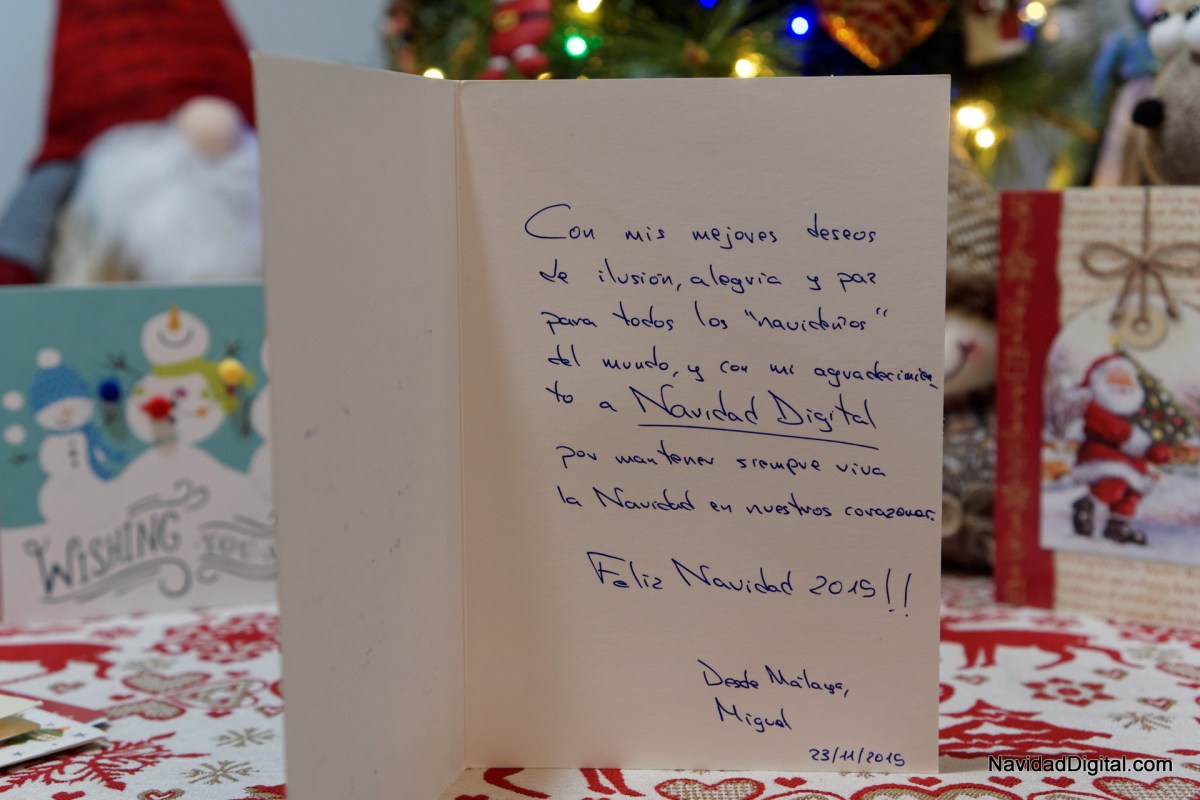 Con mis mejores deseos
de ilusión, alegría y paz
para todos los "navideños"
del mundo, y con mi agradecimien-
to a Navidad Digital
por mantener siempre viva
la Navidad en nuestros corazones.
Feliz Navidad 2019!!
Desde Málaga,
Miguel
23/11/2019
WISHING
YOU A
NavidadDigital.com